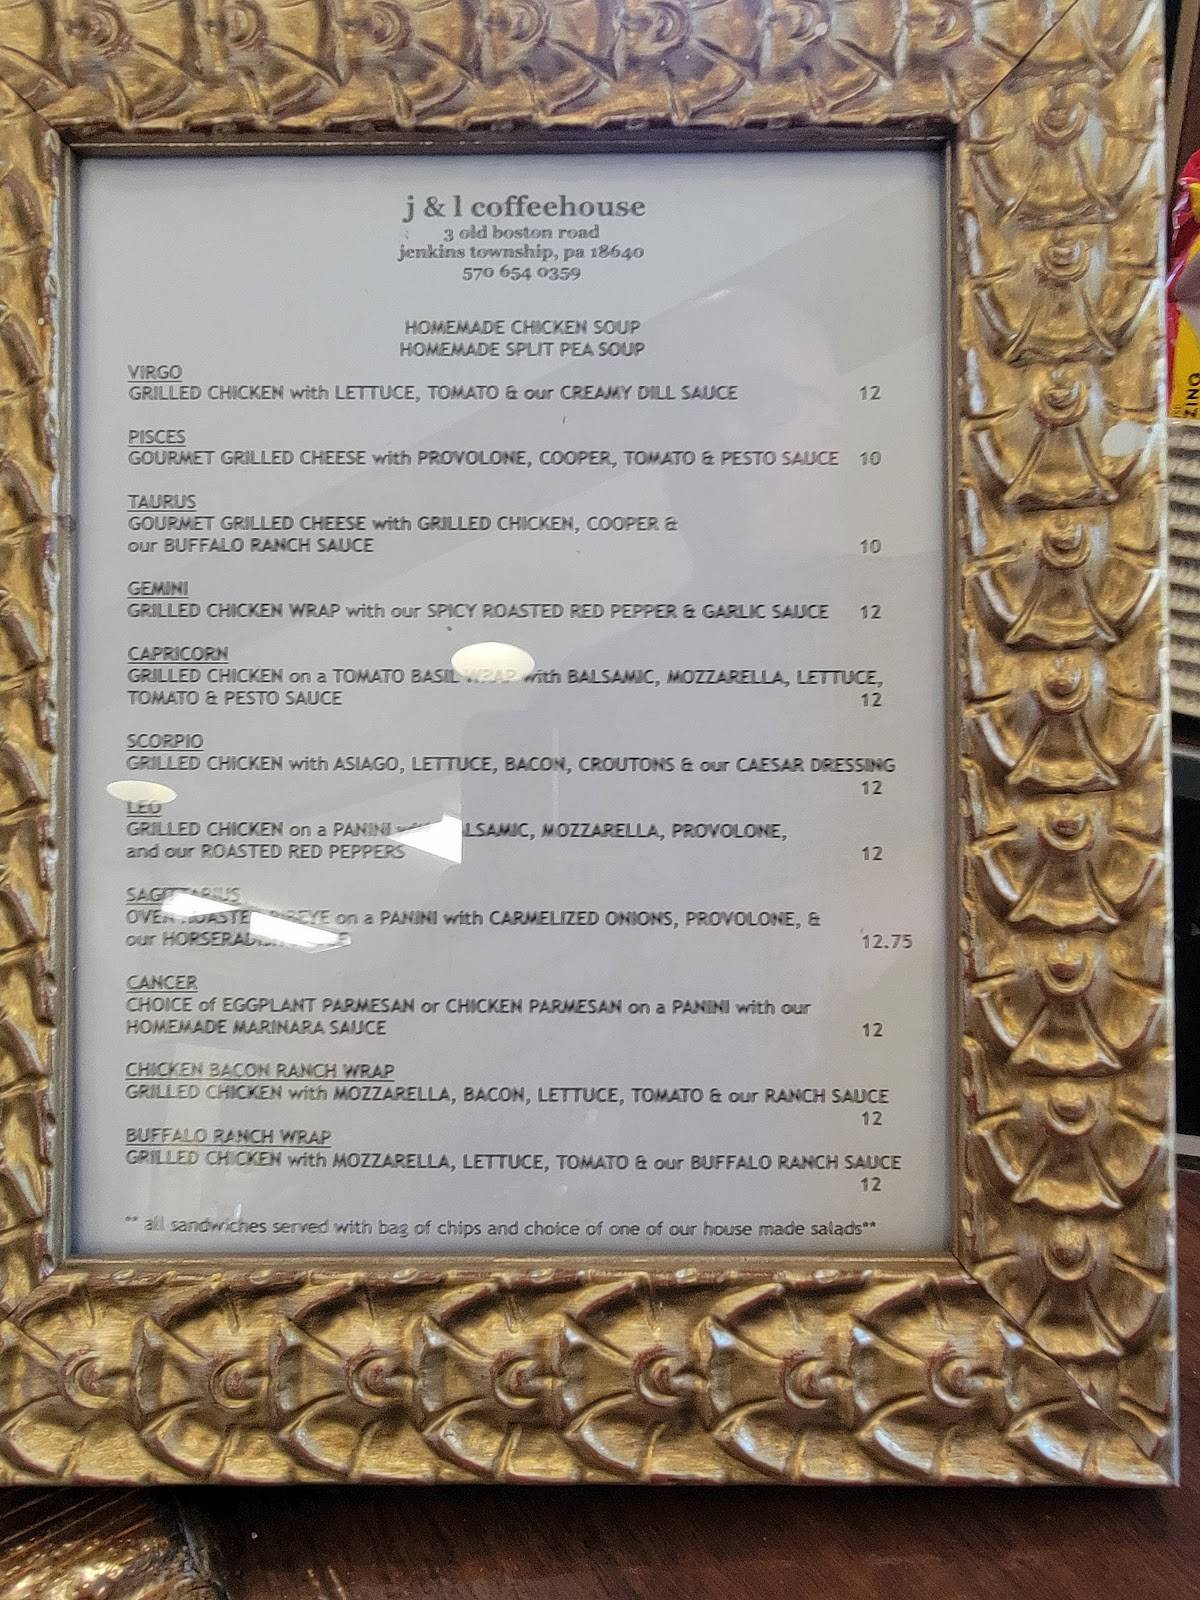 j & l coffeehouse
3 old boston road
jenkins township, pa 18640
570 654 0359
HOMEMADE CHICKEN SOUP
HOMEMADE SPLIT PEA SOUP
VIRGO
GRILLED CHICKEN with LETTUCE, TOMATO & our CREAMY DILL SAUCE 12
PISCES
GOURMET GRILLED CHEESE with PROVOLONE, COOPER, TOMATO & PESTO SAUCE 10
TAURUS
GOURMET GRILLED CHEESE with GRILLED CHICKEN, COOPER &
our BUFFALO RANCH SAUCE 10
GEMINI
GRILLED CHICKEN WRAP with our SPICY ROASTED RED PEPPER & GARLIC SAUCE 12
CAPRICORN
GRILLED CHICKEN on a TOMATO BASIL WRAP with BALSAMIC, MOZZARELLA, LETTUCE,
TOMATO & PESTO SAUCE 12
SCORPIO
GRILLED CHICKEN with ASIAGO, LETTUCE, BACON, CROUTONS & our CAESAR DRESSING
12
LEO
GRILLED CHICKEN on a PANINI with BALSAMIC, MOZZARELLA, PROVOLONE,
and our ROASTED RED PEPPERS 12
SAGITTARIUS
OVEN ROASTED RIBEYE on a PANINI with CARMELIZED ONIONS, PROVOLONE, &
our HORSERADISH SAUCE 12.75
CANCER
CHOICE of EGGPLANT PARMESAN or CHICKEN PARMESAN on a PANINI with our
HOMEMADE MARINARA SAUCE 12
CHICKEN BACON RANCH WRAP
GRILLED CHICKEN with MOZZARELLA, BACON, LETTUCE, TOMATO & our RANCH SAUCE
12
BUFFALO RANCH WRAP
GRILLED CHICKEN with MOZZARELLA, LETTUCE, TOMATO & our BUFFALO RANCH SAUCE
12
** all sandwiches served with bag of chips and choice of one of our house made salads**